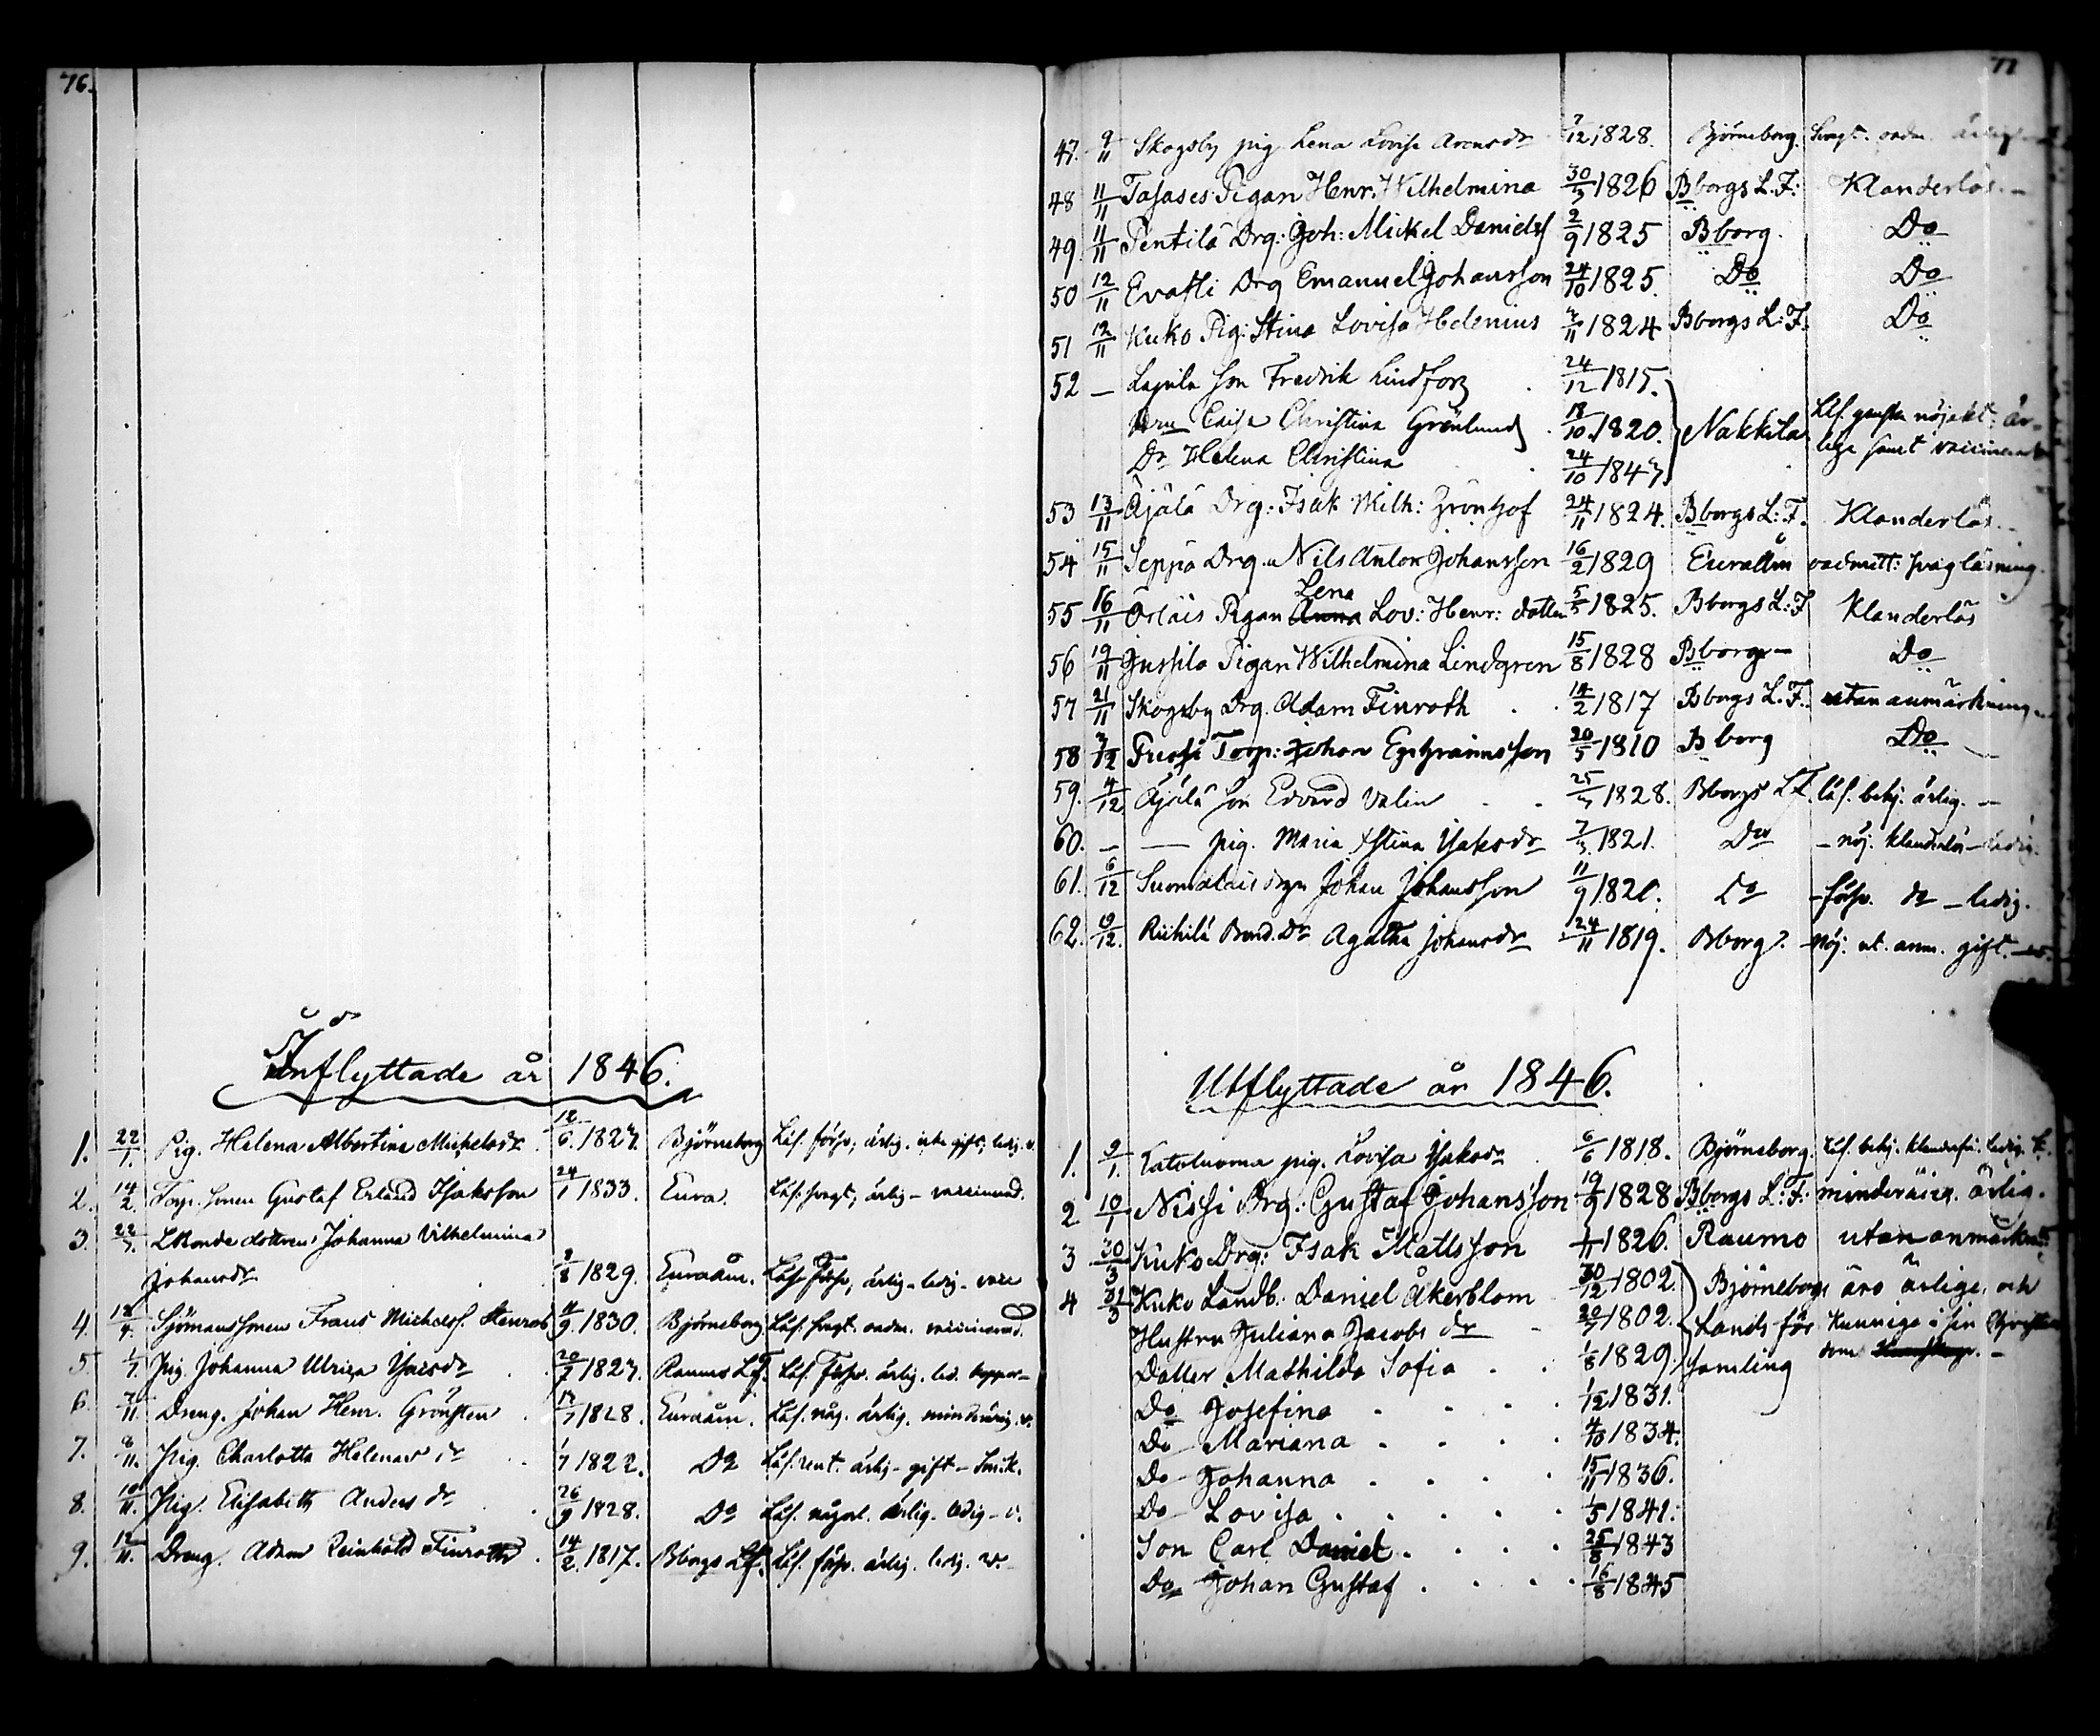 76.
Inflyttade år 1846.
1. 22/1. Pig. Helena Albertina Michelsdr 12/6. 1827. Björneborg Läs. försv, ärlig, icke gift, ledig. v.
2. 14/2. Torp. sonen Gustaf Erland Isaksson 24/1 1833. Eura. Läs. svagt, ärlig – vaccinerad.
3. 22/3. dottren Johanna Vilhelmina
Johansdr 8/8 1829. Euraåm. Läs. försv, ärlig – ledig – vacc
4. 12/4. Sjömanssonen Frans Michelss. 4/9 1830. Björneborg Läs. svagt. oadm. vaccinerad.
5. 1/7. Pig. Johanna Ulrica Isacsdr 20/7 1827. Raumo L.f. Läs. försv. ärlig. led. koppor –
6. 7/11. Dreng. Johan Henr. Grönsten 17/7 1828. Euraåm. Läs. någ. ärlig. minderårig. v.
7. 8/11. Pig. Charlotta Helena dr 1/7 1822. Do Läs. rent. ärlig – gift –
8. 10/11. Pig. Elisabeth Anders dr 26/9 1828. Do Läs. någorl. ärlig. ledig – v.
9. 12/11. Dreng. Adam Reinhold Finroth 14/2. 1817. Bborgs L.f. Läs. försv. ärlig. ledig. v. –
77
47. 9/11 Skogsby pig Lena Lovisa 7/12 1828. Björneborg. Svagt. oadm. ärlig
48 11/11 Pigan Henr. Wilhelmina 30/3 1826 Bborgs L.F: Klanderlös. –
49 11/11 Pentilä Drg: Joh: Mickel Daniels 2/9 1825 Bborg. Do
50 12/11 Drg Emanuel Johansson 24/10 1825. Do Do
51 12/11 Kuko Pig: Stina Lovisa Helenius 1824 Bborgs L:F. Do
52 – son Fredrik Lindfors 24/12 1815.
Hru Caisa Christina Grönlund 18/10. 1820. Nakkila Läs. ganska nöjakt: är-
Dr Helena Christina 24/10 1843 lige samt
53 13/11 Äjälä Drg: Isak Wilh: Grönhof 24/11 1824. Bborgs L:F. Klanderlös.
54 15/11 Seppä Drg. Nils Anton Johansson 16/2 1829 Euraåm oadmitt: svag läsning.
Lena
55 16/11 Pigan Anna Lov: Henr: dotter 5/5 1825. Bborgs L:F Klanderlös
56 19/11 Jussila Pigan Wilhelmina Lindgren 15/8 1828 Bborg – Do
57 21/11 Skogsby Drg. Adam Finroth 14/2 1817 Bborgs L.F. utan anmärkning
58 Torp: Johan Ephraimsson 20/5 1810 Bborg Do
59. 4/12 Äjälä son Edvard Valin 1828. Bborgs L.F. läs. bekj. ärlig. –
60. – — pig. Maria Xstina Isaksdr 1821. Do – nöj. klanderlös – ledig.
61. 6/12 Suomalais drgn Johan Johansson 11/9 1820. Do – försv. do – ledig.
62. 9/12. Bond. Dr Agatha Johansdr 24/11 1819. Bborg. – nöj: ut. anm. gift. – v.
Utflyttade år 1846.
1. 9/1. pig. Lovisa Isaksdr 6/6 1818. Björneborg. Läs. bekj. klanderfri. ledig.
2 10/1 Nissi Drg: Gustaf Johansson 19/9 1828 Bborgs L:F. minderårig. ärlig.
3 30/3 Kuko Drg: Isak Mattsson 1826. Raumo utan anmärkn:
4 31/3 Kuko Landb: Daniel Åkerblom 30/12 1802. Björneborgs äro ärlige, och
Hustru Juliana Jacobs dr 1802. Lands för kunnige i sin
Dotter Mathilda Sofia 1/8 1829. samling dom
Do Josefina 1/12 1831.
Do Mariana 1834.
Do Johanna 15/11 1836.
Do Lovisa 1/5 1841.
Son Carl Daniel 25/8 1843
Do Johan Gustaf 16/8 1845